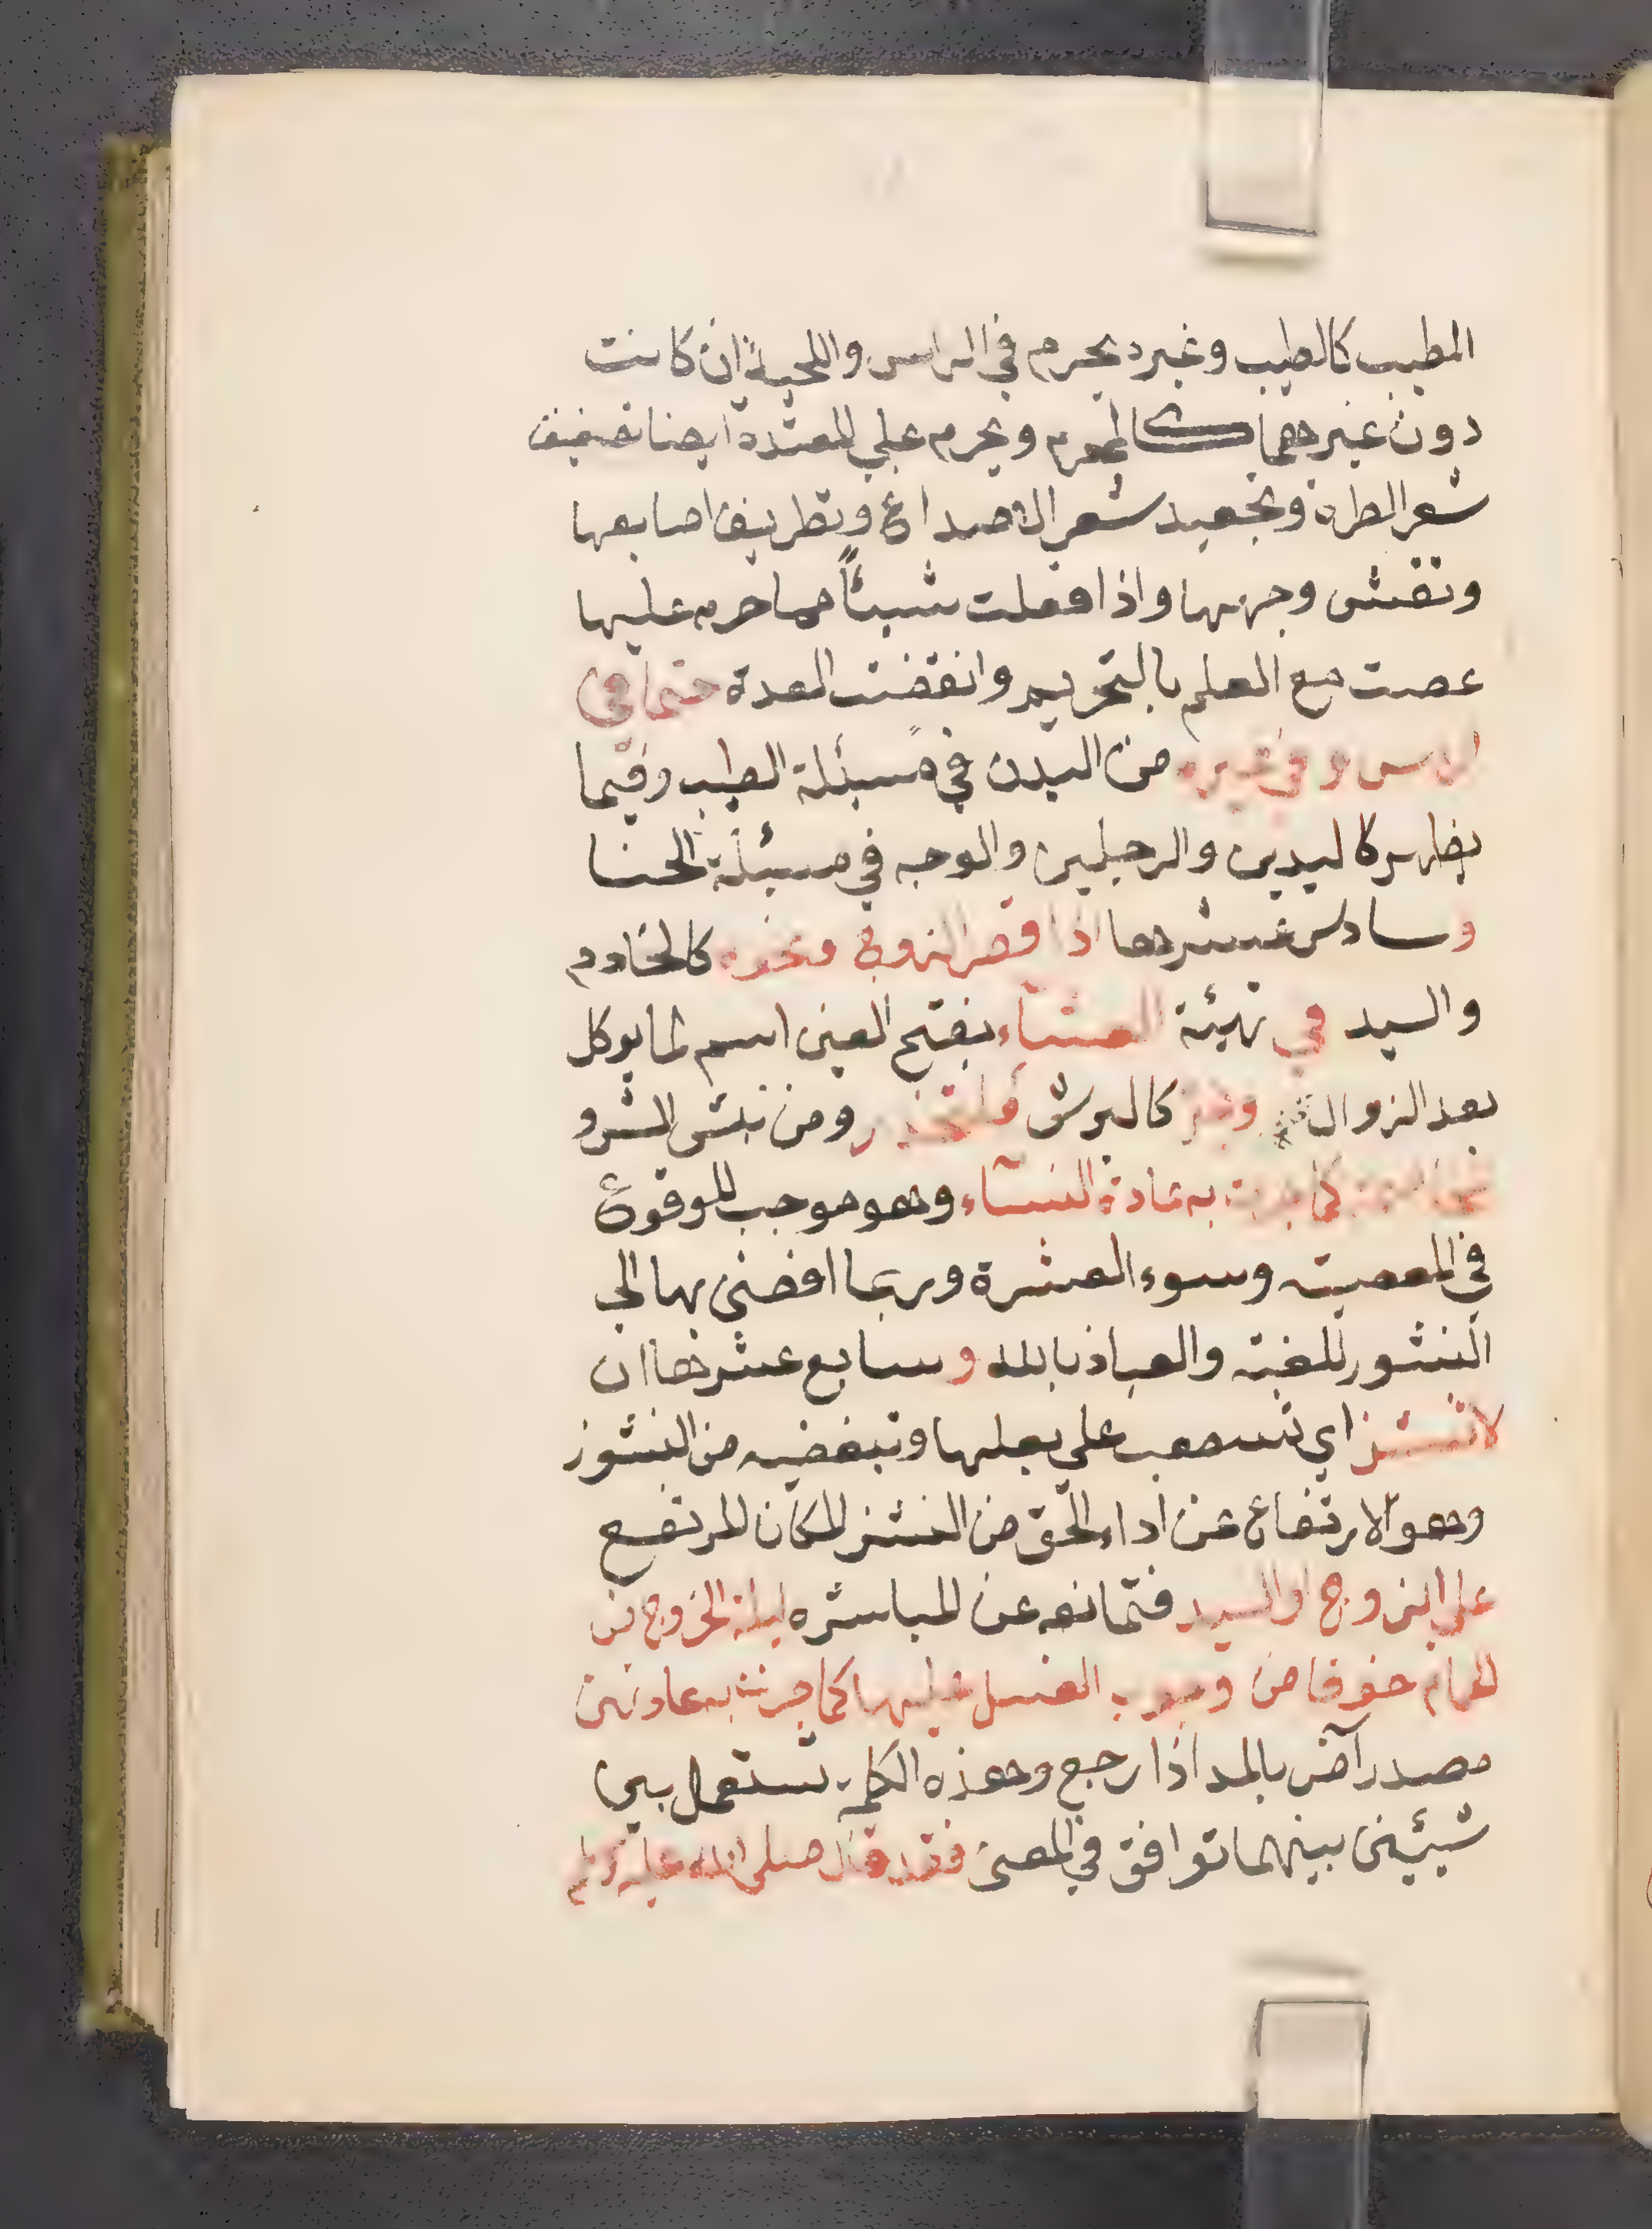 المطيب كالطيب وغيره يحرم في الراس واللحية ان كانت
دون غيرهما كالمحرم ويحرم علي المعتدة ايضا تصفيف
شعر الطرة وتجعيد شعر الاصداغ وتطريف اصابعها
ونقش وجهها واذا فعلت شيئاً مما حرم عليها
عصت مع العلم بالتحريم وانقضت العدة حتما في
الراس وفي غيره من البدن في مسئلة الطيب وفيما
يظهر كاليدين والرجلين والوجه في مسئلة الحنا
وسادس عشرها اذا قصر الزوج ونحوه كالخادم
والسيد في تهيئة العشاء بفتح العين اسم لما يوكل
بعد الزوال كالبرش فلتحذر ومن
كما جرت به عادة النسآء وهو موجب للوقوع
في المعصية وسوء العشرة وربما افضى بها الى
النشور للغته والعياذ بالله وسابع عشرها ان
لا تنشز اي تستصعب على بعلها وتبغضه من النشوز
وهو الارتفاع عن اداء الحق من النشز المكان المرتفع
على الزوج او السيد فتمانعه عن المباشره ليلة الخروج من
الحمام خوفا من وجوب الغسل عليها كما جرت به عادتهن
مصدر آض بالمد اذا رجع وهذه الكلمة تستعمل بين
شيئين بينهما توافق في المعنى فقد قال صلى الله عليه وسلم